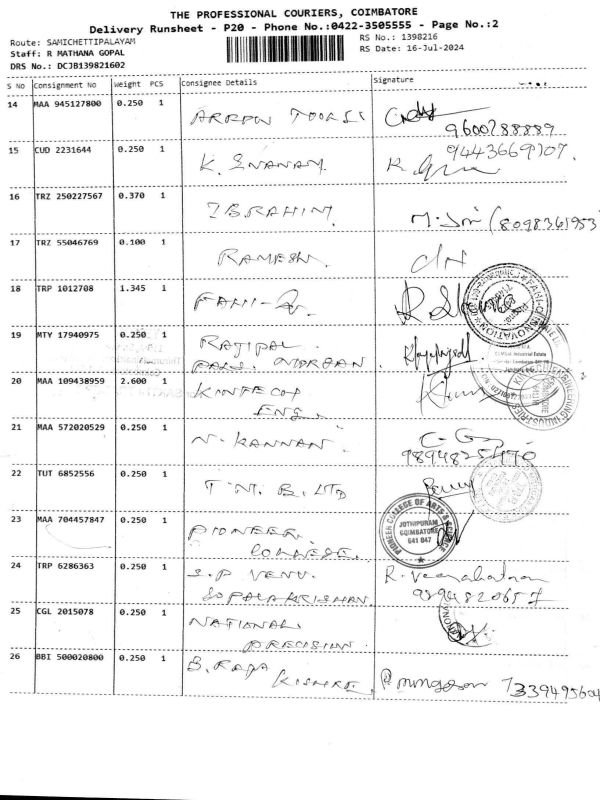 THE PROFESSIONAL COURIERS, COIMBATORE
Delivery Runsheet - P20 - Phone No.:0422-3505555 - Page No.:2
Route: SAMICHETTIPALAYAM
RS No.: 1398216
Staff: R MATHANA GOPAL
RS Date: 16-Jul-2024
DRS No.: DCJB139821602
S No Consignment No Weight PCS Consignee Details Signature
14 MAA 945127800 0.250 1
9600288889
15 CUD 2231644 0.250 1 K.
16 TRZ 250227567 0.370 1 IBRAHIM (8098361953
17 TRZ 55046769 0.100 1 RAMESH.
18 TRP 1012708 1.345 1
19 MTY 17940975 0.250 1 RAJIPAL
20 MAA 109438959 2.600 1
ENG.
21 MAA 572020529 0.250 1 N. KANNAN.
22 TUT 6852556 0.250 1 T. N. B. LTD
23 MAA 704457847 0.250 1 PIONEER
COLLEGE.
PIONEER COLLEGE OF ARTS & SCIENCE
JOTHIPURAM
COIMBATORE
641 047
24 TRP 6286363 0.250 1 S.P VENU.
GOPALAKRISHNAN.
25 CGL 2015078 0.250 1 NATIONAL
PRECISION.
26 BBI 500020800 0.250 1 B. RAJA
KISHRE.